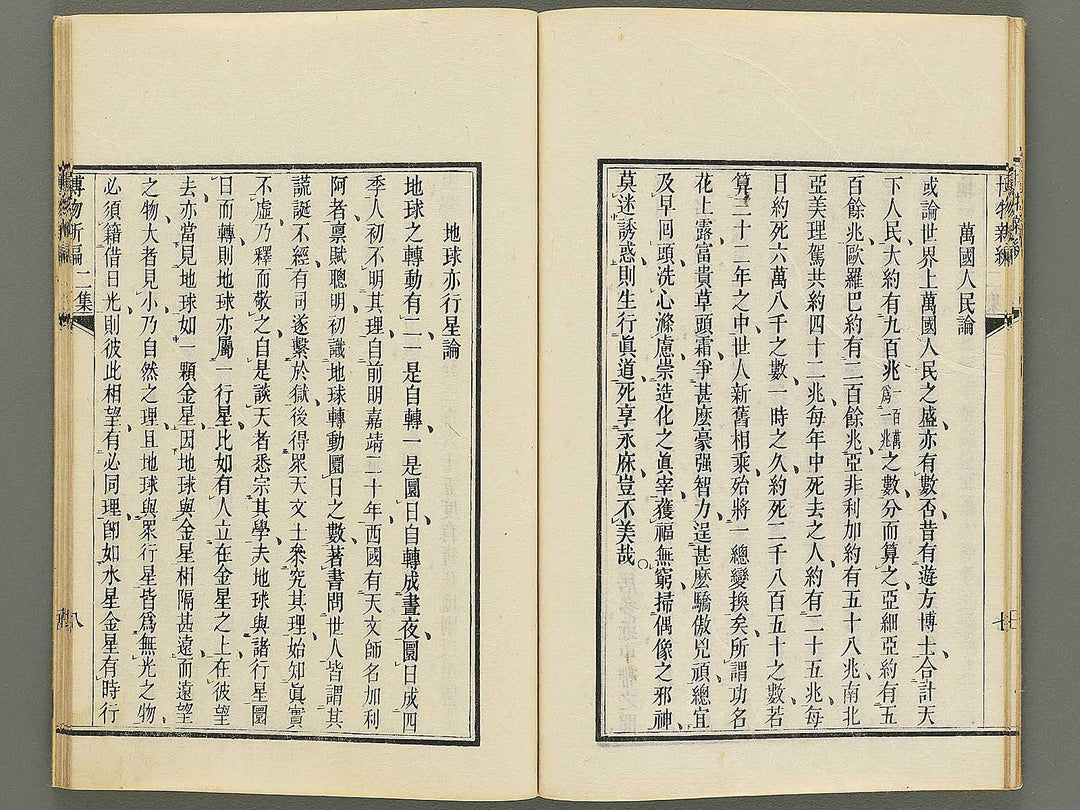 博物新編
七
萬國人民論
或論世界上萬國人民之盛亦有數否昔有遊方博士合計天
下人民大約有九百兆一百萬爲一兆之數分而算之亞細亞約有五
百餘兆歐羅巴約有二百餘兆亞非利加約有五十八兆南北
亞美理駕共約四十二兆每年中死去之人約有二十五兆每
日約死六萬八千之數一時之久約死二千八百五十之數若
算三十二年之中世人新舊相乘殆將一總變換矣所謂功名
花上露富貴草頭霜爭甚麽豪强智力逞甚麽驕傲兇頑總宜
及早囘頭洗心滌慮崇造化之眞宰獲福無窮掃偶像之邪神
莫迷誘惑則生行眞道死享永庥豈不美哉○
地球亦行星論
地球之轉動有二一是自轉一是圜日自轉成晝夜圜日成四
季人初不明其理自前明嘉靖二十年西國有天文師名加利
阿者禀賦聰明初識地球轉動圜日之數著書問世人皆謂其
謊誕不經有司遂繫於獄後得眾天文士叅究其理始知眞實
不虛乃釋而敬之自是談天者悉宗其學夫地球與諸行星圜
日而轉則地球亦屬一行星比如有人立在金星之上在彼望
去亦當見地球如一顆金星因地球與金星相隔甚遠而遠望
之物大者見小乃自然之理且地球與眾行星皆爲無光之物
必須籍借日光則彼此相望有必同理卽如水星金星有時行
博物新編 二集
八